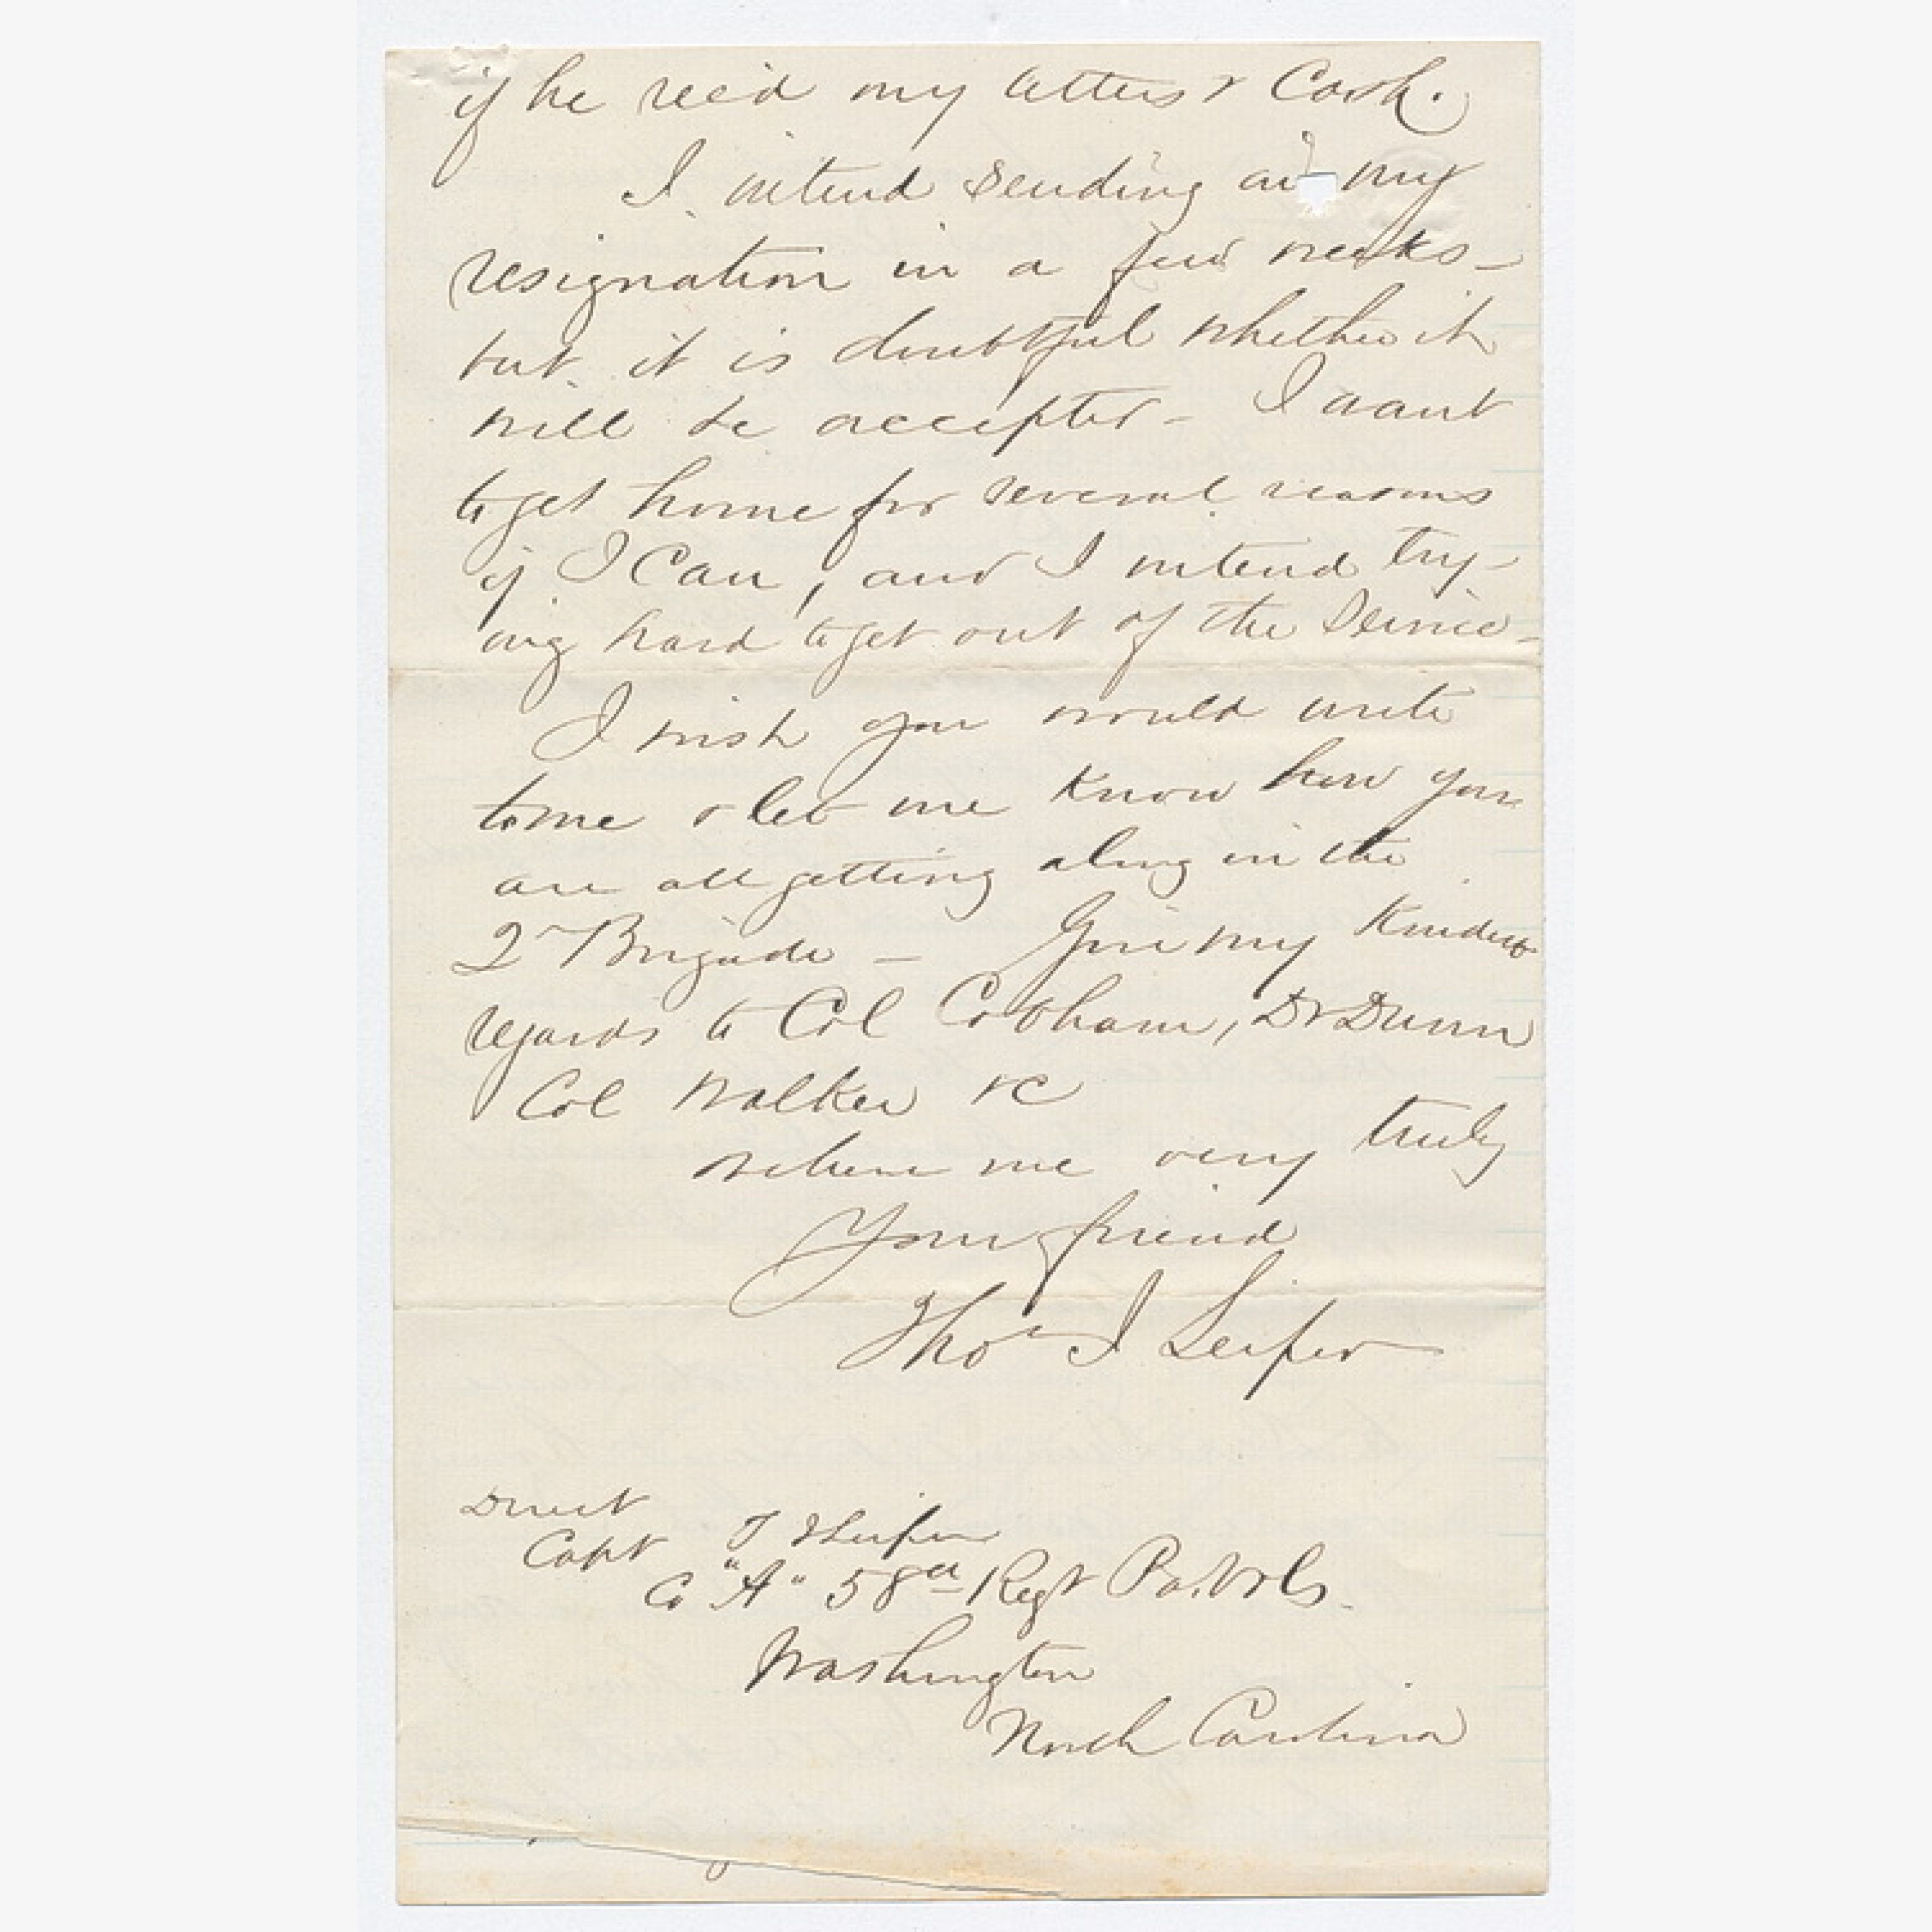 if he rec'd my letters & Cash.
I intend sending in my
resignation in a few weeks -
but it is doubtful whether it
will be accepted - I want
to get home for several reasons
if I Can, and I intend try-
ing hard to get out of the Service -
I wish you would write
to me & let me Know how you
are all getting along in the
2nd Brigade - Give my Kindest
regards to Col Cobham, Dr Dunn
Col Walker &c
believe me very truly
Your friend
Thos I Leiper
Direct
Capt T I Leiper
Co "A" 58th Regt Pa. Vols.
Washington
North Carolina